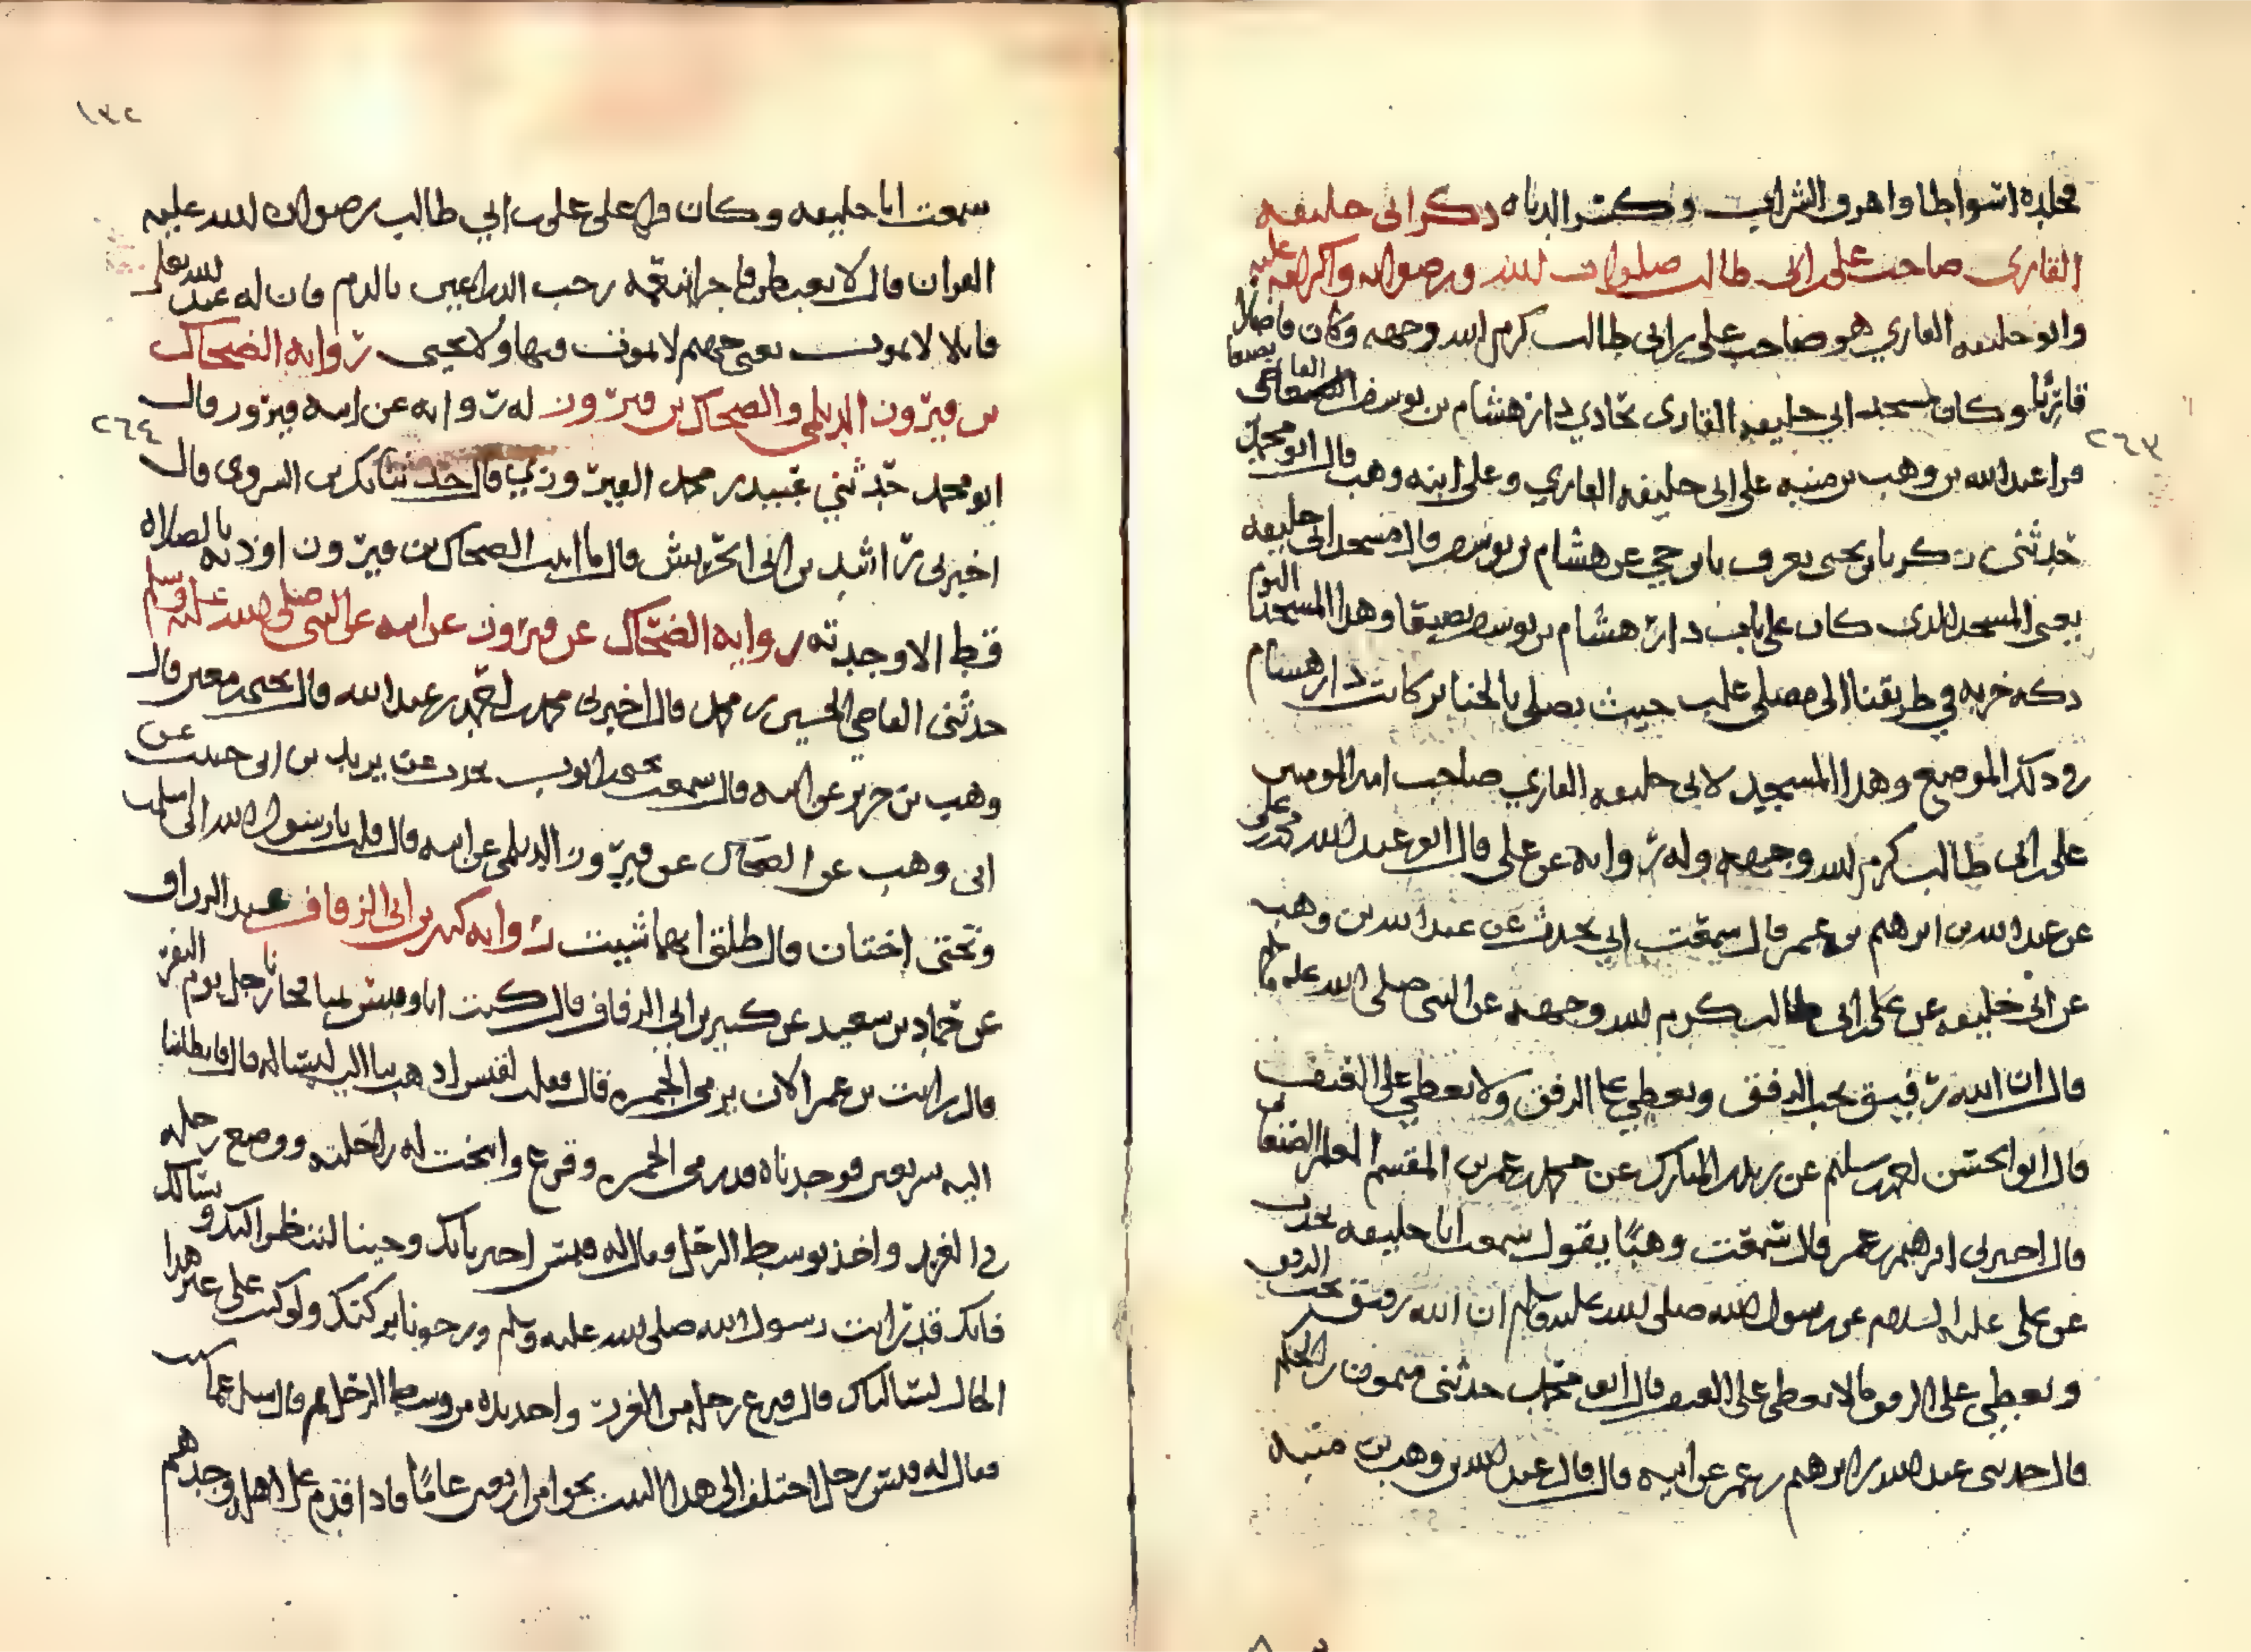 فجلده اسواطا واهرق الشراب وكسر الدباه ذكر ابي خليفه
القاري صاحب علي بن ابي طالب صلوات الله ورضوانه واكرامه عليه
وابو خليفه القاري هو صاحب علي بن ابي طالب كرم الله وجهه وكان فاضلا
قارئا وكان مسجد ابي خليفه القاري تحادي دار هشام بن يوسف القاضي بصنعا
٢٦٣
قرا عبدالله بن وهب بن منبه على ابي خليفه القاري وعلى ابنه وهب قال ابو محمد
حدثني زكريا بن يحيى يعرف بابن حجي عن هشام بن يوسف قال مسجد ابي خليفه
يعني المسجد الذي كان على باب دار هشام بن يوسف بصنعا وهذا المسجد اليوم
دكه خربه في طريقنا الى مصلى علب حيث يصلى بالجنايز كانت دار هشام
في ذلك الموضع وهذا المسجد لابي خليفه القاري صاحب امير المومنين
علي بن ابي طالب كرم الله وجهه وله روايه عن علي قال ابو عبد الله محمد بن علي
عن عبد الله بن ابرهيم بن عمر قال سمعت ابي يحدث عن عبد الله بن وهب
عن ابي خليفه عن علي بن ابي طالب كرم الله وجهه عن النبي صلى الله عليه وسلم
قال ان الله رفيق يحب الرفق ويعطي على الرفق ولا يعطي على العنف
قال ابو الحسن احمد بن سليم عن زيد بن المبارك عن محمد بن عمر بن المقسم المعلم الصنعاني
قال اخبرني ابرهيم بن عمر قال سمعت وهبا يقول سمعت ابا خليفه يحدث
عن علي عليه السلام عن رسول الله صلى الله عليه وسلم ان الله رفيق يحب الرفق
ويعطي على الرفق ما لا يعطي على العنف قال ابو محمد حدثني ميمون بن الحكم
قال حدثني عبد الله بن ابرهيم بن عمر عن ابيه قال قال عبد الله بن وهب بن منبه
١٣٢
سمعت ابا خليفه وكان قرا على علي بن ابي طالب رضوان الله عليه
القران قال لا يغبطن فاجرا بنعمه رحب الذراعين بالدم فان له عند الله تعلى
قاتلا لا يموت يعني جهنم لا يموت فيها ولا يحيى روايه الضحاك
بن فيروز الديلمي والضحاك بن فيروز له روايه عن ابيه فيروز قال
٢٦٤
ابو محمد حدثني عبيد بن محمد الفيروزي قال حدثنا بكر بن السروي قال
اخبرني راشد بن ابي الحريش قال ما اتيت الضحاك بن فيروز اوذنه بالصلاه
قط الا وجدته روايه الضحاك عن فيروز عن ابيه عن النبي صلى الله عليه وسلم
حدثني القاضي الحسين بن محمد قال اخبرني محمد بن احمد بن عبد الله قال يحيى بن معين قال
وهب بن جرير عن ابيه قال سمعت يحيى بن ايوب يحدث عن يزيد بن ابي حبيب عن
ابي وهب عن الضحاك عن فيروز الديلمي عن ابيه قال قلت يا رسول الله اني اسلمت
وتحتي اختان قال طلق ايهما شيت روايه كبير بن ابي الزفاف عبد الرزاق
عن حماد بن سعيد عن كبير بن ابي الزفاف قال كنت انا وقيس بمنا فجانا رجل يوم النفر
قال رايت بن عمر الان يرمي الجمره قال فقلت لقيس اذهب بنا اليه لنساله قال فانطلقنا
اليه سريعين فوجدناه قد رمى الجمره وفرغ وانيخت له راحلته ووضع رجله
في الغرز واخذ بوسط الرحل وقال له قيس اخبر باتك وجينا لننظر اليك ونسالك
فانك قد رايت رسول الله صلى الله عليه وسلم ورجونا بركتك ولو كنت على غير هذا
الحال لسالناك قال فنزع رجله من الغرز واخذ يده من وسط الرحل ثم قال سل عما شيت
فقال له قيس رجل اختلف الى هذا البيت نحوا من اربعين عاما فاذا قدم على اهله وجدهم